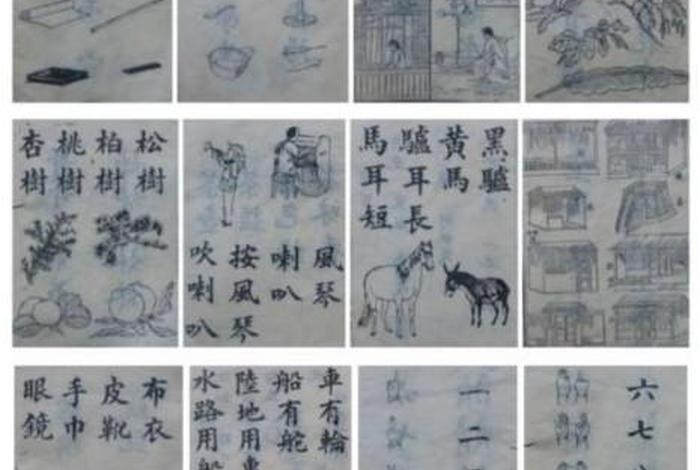 松樹
柏樹
桃樹
杏樹
風琴
喇叭
按風琴
吹喇叭
黑驢
黃馬
驢耳長
馬耳短
布衣
皮靴
手巾
眼鏡
車有輪
船有舵
陸地用車
水路用船
一
二
六
七